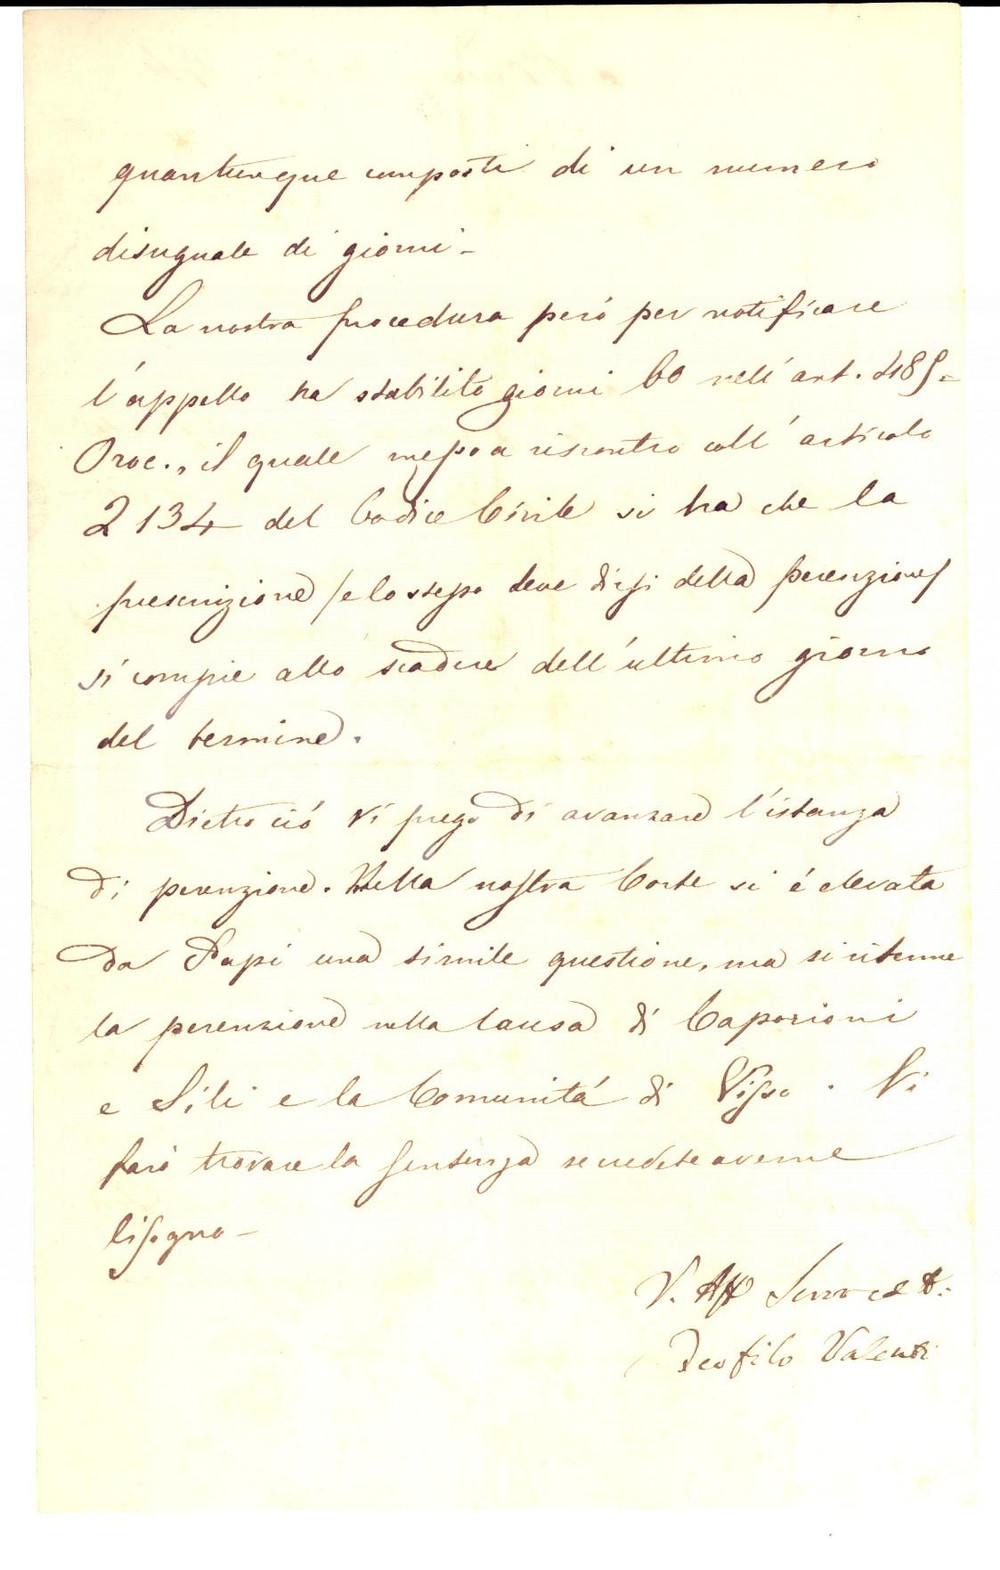 quantunque composti di un numero
disuguale di giorni -
La nostra procedura però per notificare
l'appello ha stabilito giorni 60 nell'art. 485 -
Proc., il quale messo a riscontro coll'articolo
2134 del Codice Civile si ha che la
prescrizione / e lo stesso deve dirsi della perenzione /
si compie allo scadere dell'ultimo giorno
del termine.
Dietro ciò Vi prego di avanzare l'istanza
di perenzione. Nella nostra Corte si è elevata
da Papi una simile questione, ma si ritenne
la perenzione nella causa di Caporioni
e Sili e la Comunità di Visso. Vi
farò trovare la sentenza se credete averne
bisogno -
V. Aff Servo ed A.
Teofilo Valenti